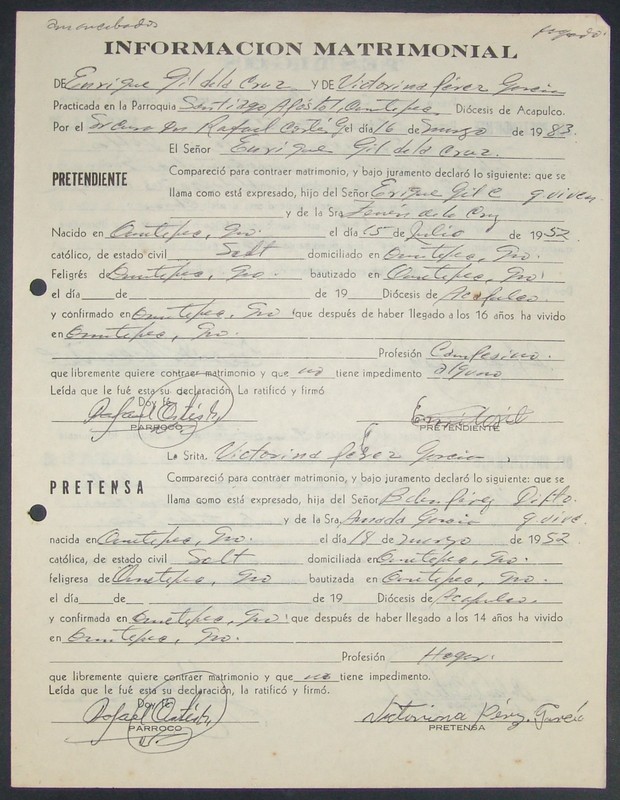 amancebados
pagado.
INFORMACION MATRIMONIAL
DE Enrique Gil de la Cruz Y DE Victorina Pérez Garcia
Practicada en la Parroquia Santiago Apóstol, Ometepec Diócesis de Acapulco.
Por el Sr Cura Dn Rafael el día 16 de Marzo de 1983.
El Señor Enrique Gil de la Cruz.
PRETENDIENTE
Compareció para contraer matrimonio, y bajo juramento declaró lo siguiente: que se
llama como está expresado, hijo del Señor Enrique Gil C q viven
y de la Sra. de la Cruz
Nacido en Ometepec, Gro. el día 15 de Julio de 1952
católico, de estado civil Solt domiciliado en Ometepec, Gro.
Feligrés de Ometepec, Gro. bautizado en Ometepec, Gro.
el día de de 19 Diócesis de Acapulco.
y confirmado en Ometepec, Gro. que después de haber llegado a los 16 años ha vivido
en Ometepec, Gro.
Profesión Campesino.
que libremente quiere contraer matrimonio y que no tiene impedimento alguno
Leída que le fué esta su declaración. La ratificó y firmó
Doy fé
PARROCO
PRETENDIENTE
La Srita. Victorina Pérez Garcia
PRETENSA
Compareció para contraer matrimonio, y bajo juramento declaró lo siguiente: que se
llama como está expresado, hija del Señor Pérez
y de la Sra. Amada Garcia q vive.
nacida en Ometepec, Gro. el día 18 de marzo de 1952
católica, de estado civil Solt domiciliada en Ometepec, Gro.
feligresa de Ometepec, Gro bautizada en Ometepec, Gro.
el día de de 19 Diócesis de Acapulco.
y confirmada en Ometepec, Gro. que después de haber llegado a los 14 años ha vivido
en Ometepec, Gro.
Profesión Hogar.
que libremente quiere contraer matrimonio y que no tiene impedimento.
Leída que le fué esta su declaración, la ratificó y firmó.
Doy fé
PARROCO
Victorina Pérez Garcia
PRETENSA